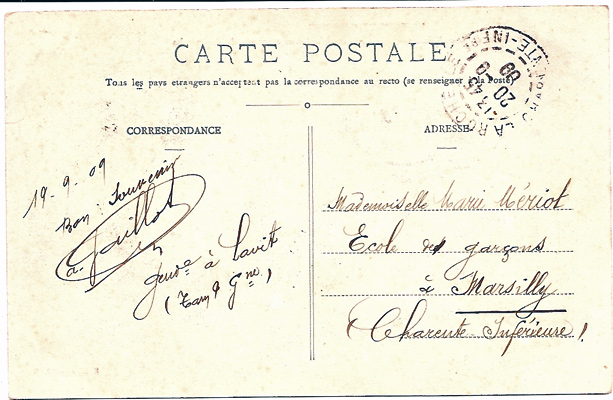 CARTE POSTALE
Tous les pays etrangers n'acceptent pas la correspondance au recto (se renseigner à la Poste)
CORRESPONDANCE
ADRESSE
19-9-09
Bon Souvenir
a. Paillot
Gend^e à Lavit
(Tarn & G^ne)
Mademoiselle Marie Mériot
Ecole des garçons
à Marsilly
Charente Inférieure
LA ROCHE
13 45
20 -9
09
CHARENTE-INFRE